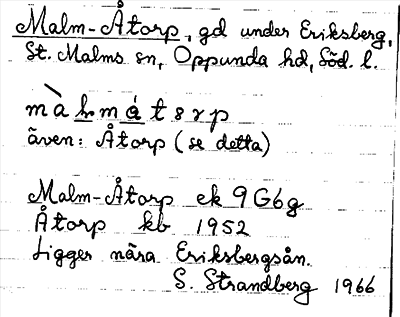 Malm-Åtorp, gd under Eriksberg,
St. Malms sn, Oppunda hd, Söd. l.
màlmátsrp
även: Åtorp (se detta)
Malm-Åtorp ek 9G6g
Åtorp kb 1952
Ligger nära Eriksbergsån.
S. Strandberg 1966